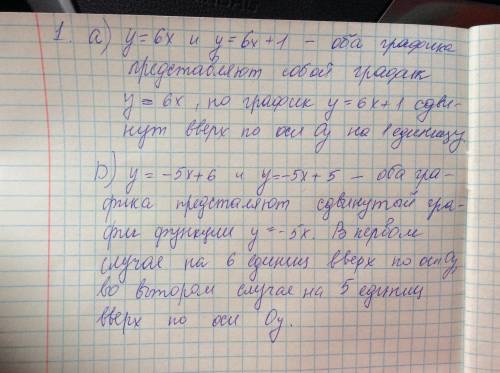 1. а) y=6x и y=6x+1 – оба графика
представляют собой график
y=6x, но график y=6x+1 сдви-
нут вверх по оси Oy на 1 единицу
b) y=-5x+6 и y=-5x+5 – оба гра-
фика предсталяют сдвинутый гра-
фик функции y=-5x. В первом
случае на 6 единиц вверх по оси Oy,
во втором случае на 5 единиц
вверх по оси Oy.